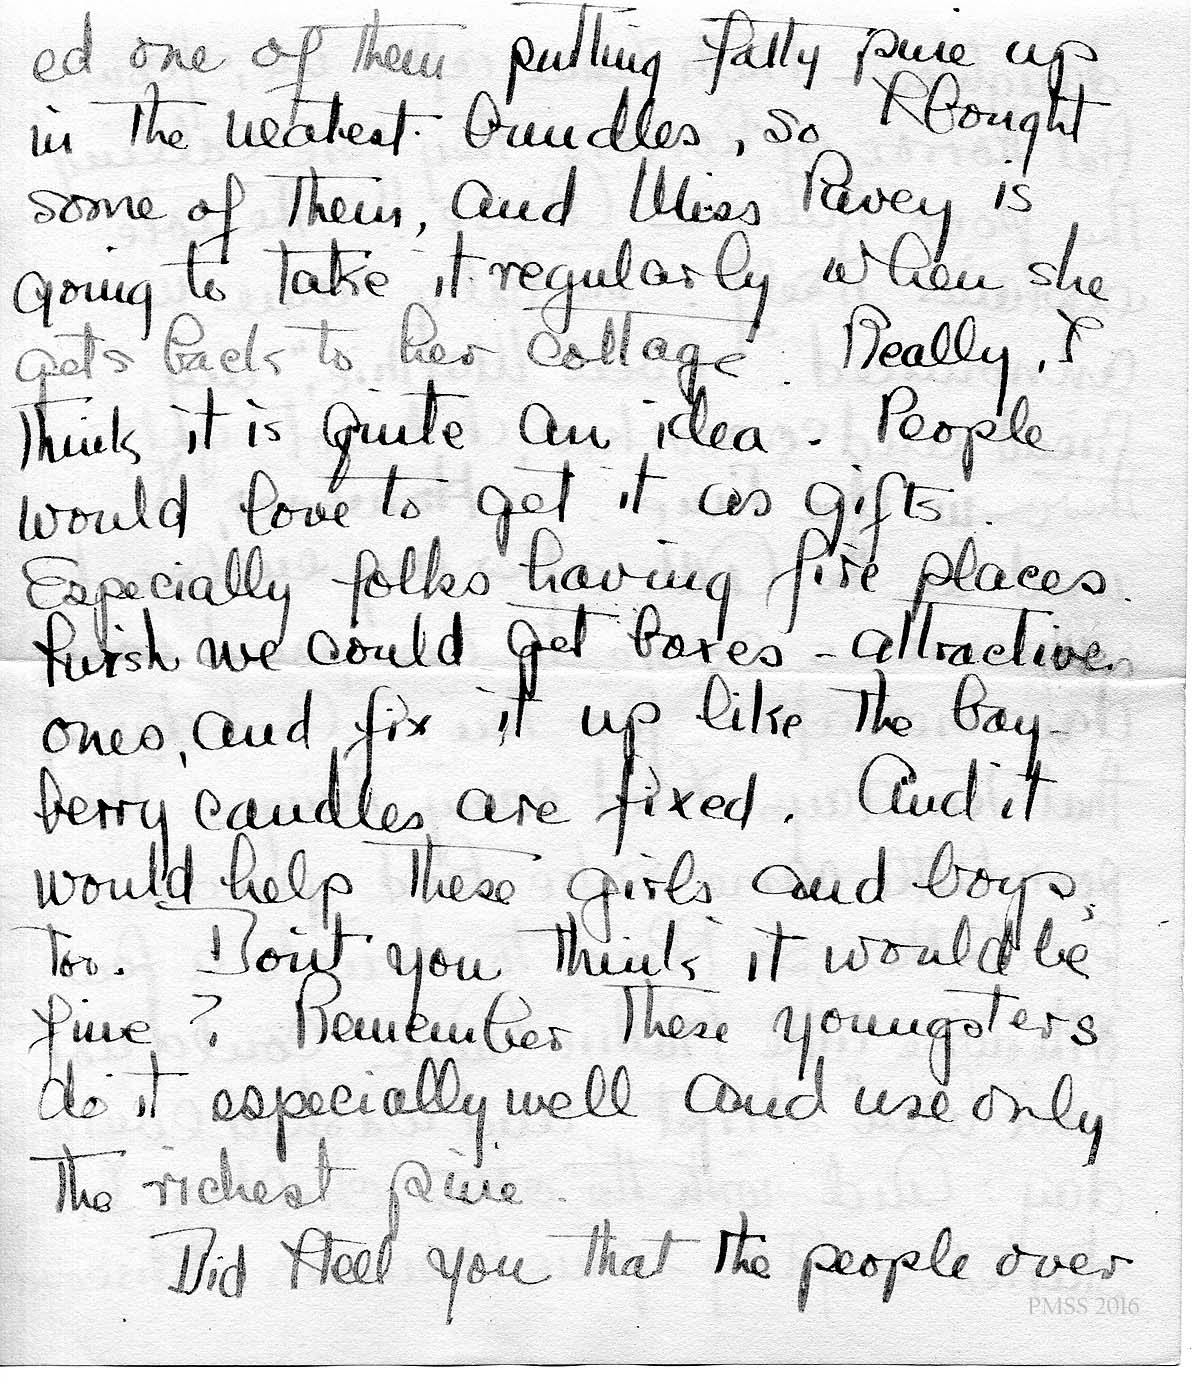 ed one of them putting fatty pine up
in the neatest bundles, so I bought
some of them, and Miss Pavey is
going to take it regularly when she
gets back to her cottage. Really, I
think it is quite an idea. People
would love to get it as gifts.
Especially folks having fire places.
I wish we could get boxes - attractive
ones, and fix it up like the bay-
berry candles are fixed. And it
would help these girls and boys,
too. Don't you think it would be
fine? Remember these youngsters
do it especially well and use only
the richest pine.
Did I tell you that the people over
PMSS 2016